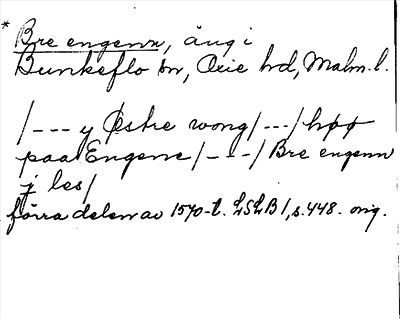 * Bre engenn, äng i
Bunkeflo sn, Oxie hd, Malm. l.
/--- y Østre wong /---/ høø
paa Engene /---/ Bre engenn
j les/
förra delen av 1570-t. LSLB 1, s. 448. orig.